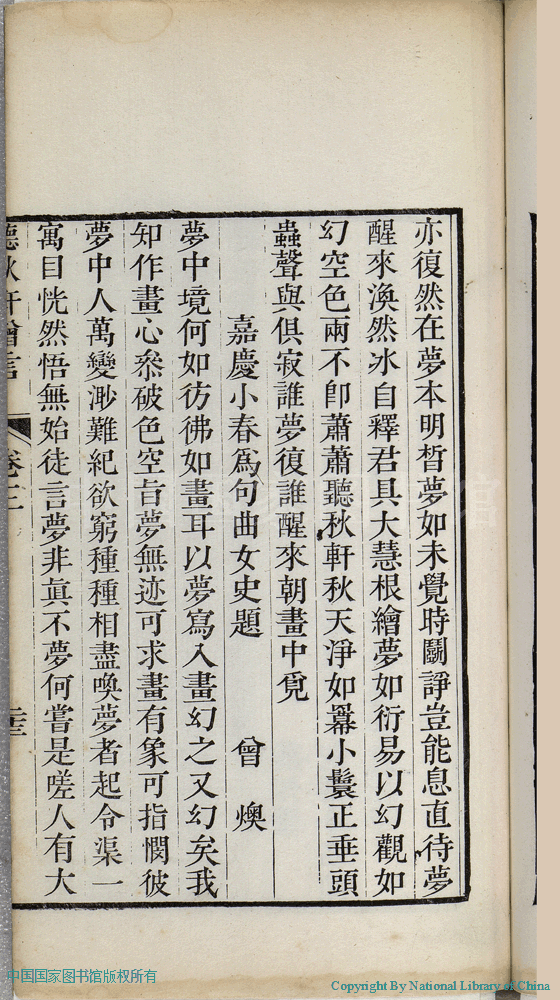 亦復然在夢本明晳夢如未覺時鬭諍豈能息直待夢
醒來渙然冰自釋君具大慧根繪夢如衍易以幻觀如
幻空色兩不卽蕭蕭聽秋軒秋天淨如羃小鬟正垂頭
蟲聲與俱寂誰夢復誰醒來朝畫中覓
嘉慶小春爲句曲女史題 曾燠
夢中境何如彷彿如畫耳以夢寫入畫幻之又幻矣我
知作畫心叅破色空旨夢無迹可求畫有象可指憫彼
夢中人萬變渺難紀欲窮種種相盡喚夢者起令渠一
寓目恍然悟無始徒言夢非眞不夢何嘗是嗟人有大
聽秋軒贈言 卷三
中国国家图书馆版权所有
Copyright By National Library of China